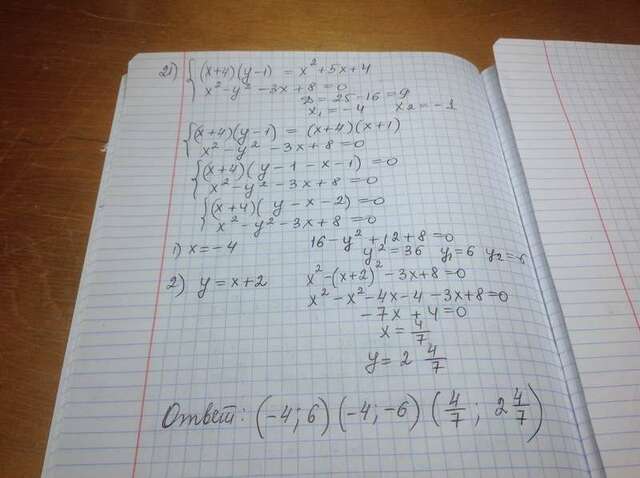 21) { (x+4)(y-1) = x²+5x+4
x²-y²-3x+8=0
D=25-16=9
x₁=-4 x₂=-1
{ (x+4)(y-1) = (x+4)(x+1)
x²-y²-3x+8=0
{ (x+4)(y-1-x-1)=0
x²-y²-3x+8=0
{ (x+4)(y-x-2)=0
x²-y²-3x+8=0
1) x=-4 16-y²+12+8=0
y²=36 y₁=6 y₂=-6
2) y=x+2 x²-(x+2)²-3x+8=0
x²-x²-4x-4-3x+8=0
-7x+4=0
x=4/7
y=2 4/7
Ответ: (-4;6) (-4;-6) (4/7; 2 4/7)